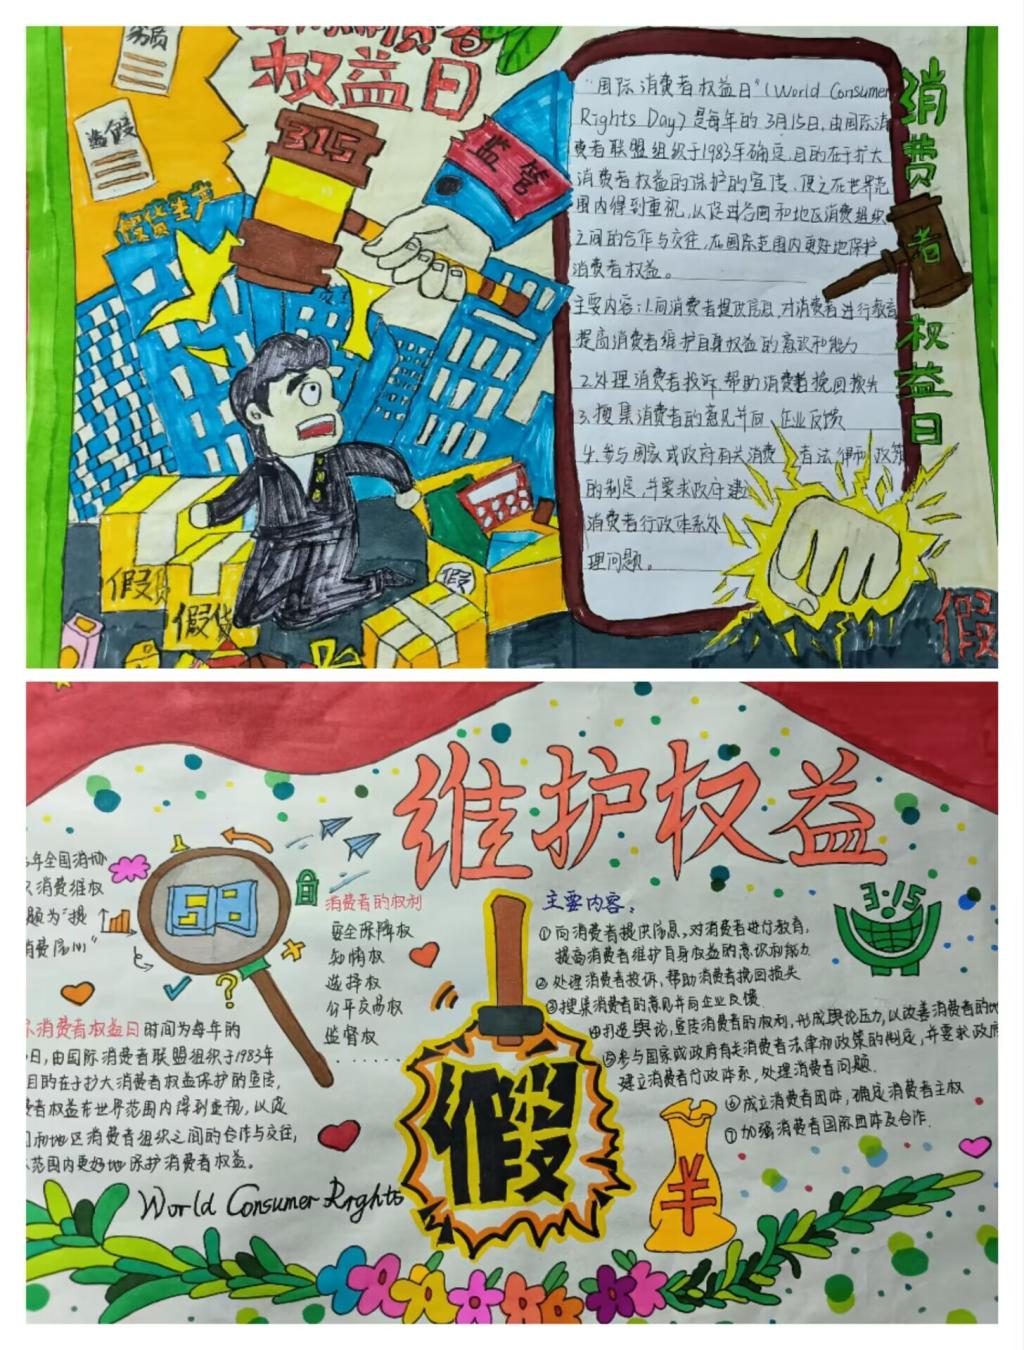 劣质
造假
假货生产
消费者
权益日
315
监管
"国际消费者权益日"(World Consumer
Rights Day)是每年的3月15日,由国际消
费者联盟组织于1983年确定,目的在于扩大
消费者权益的保护的宣传,使之在世界范
围内得到重视,以促进各国和地区消费组织
之间的合作与交往,在国际范围内更好地保护
消费者权益。
主要内容:1.向消费者提供信息,对消费者进行教育
提高消费者维护自身权益的意识和能力
2.处理消费者投诉,帮助消费者挽回损失
3.搜集消费者的意见并向企业反馈
4.参与国家或政府有关消费者法律和政策
的制定,并要求政府建
消费者行政体系处
理问题。
消费者权益日
假货
假货
假
假
维护权益
年全国消协
消费维权
题为"提
消费信心"
消费者的权利
安全保障权
知情权
选择权
公平交易权
监督权
......
消费者权益日时间为每年的
日,由国际消费者联盟组织于1983年
目的在于扩大消费者权益保护的宣传,
者权益在世界范围内得到重视,以促
和地区消费者组织之间的合作与交往,
范围内更好地保护消费者权益。
World Consumer Rights
假
主要内容:
①向消费者提供信息,对消费者进行教育,
提高消费者维护自身权益的意识和能力
②处理消费者投诉,帮助消费者挽回损失
③搜集消费者的意见并向企业反馈.
④打造舆论,宣传消费者的权利,形成舆论压力,以改善消费者的地
⑤参与国家或政府有关消费者法律和政策的制定,并要求政府
建立消费者行政体系,处理消费者问题.
⑥成立消费者团体,确定消费者主权
⑦加强消费者国际团体及合作.
3·15
¥